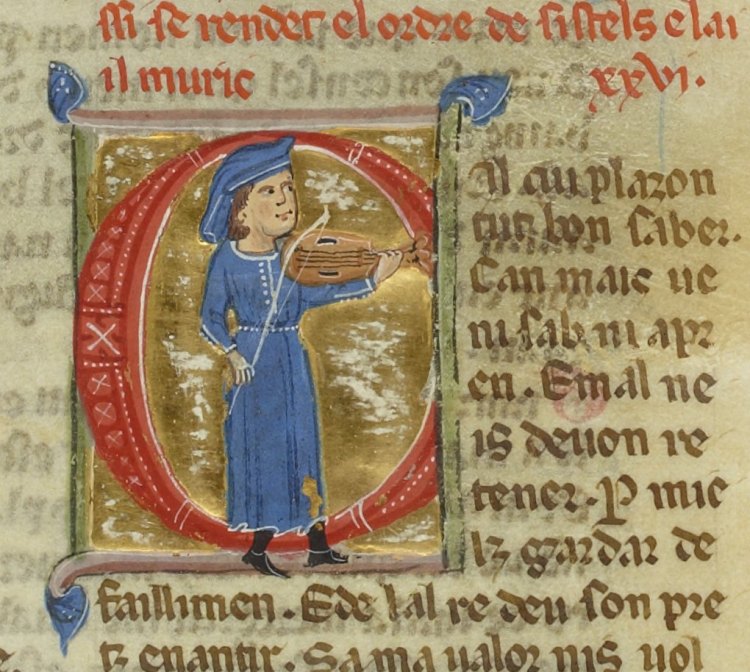 ssi se rendet el ordre de sistels e lai
il muric xxvi.
CIl cui plazon
tut bon saber.
Can mais ue
ni sab ni apr
en. E mal ne
is deuon re
tener. P mie
lz gardar de
faillimen. E de lal re deu son pre
tz enantir. Sa ma ualor nis uol